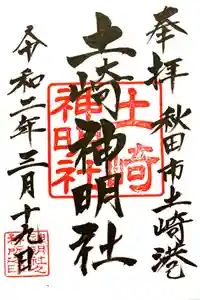 奉拝
秋田市土崎港
土崎神明社
土崎
神明社
令和二年三月十九日